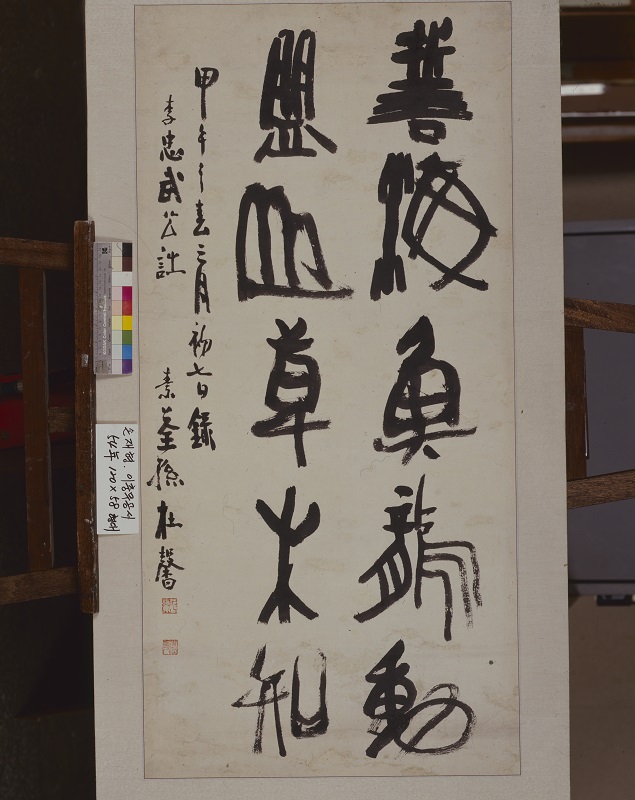 誓海魚龍動
盟山草木知
甲午之春三月初七日錄
李忠武公詩 素荃孫在馨
손재형. 이충무공시
120×58